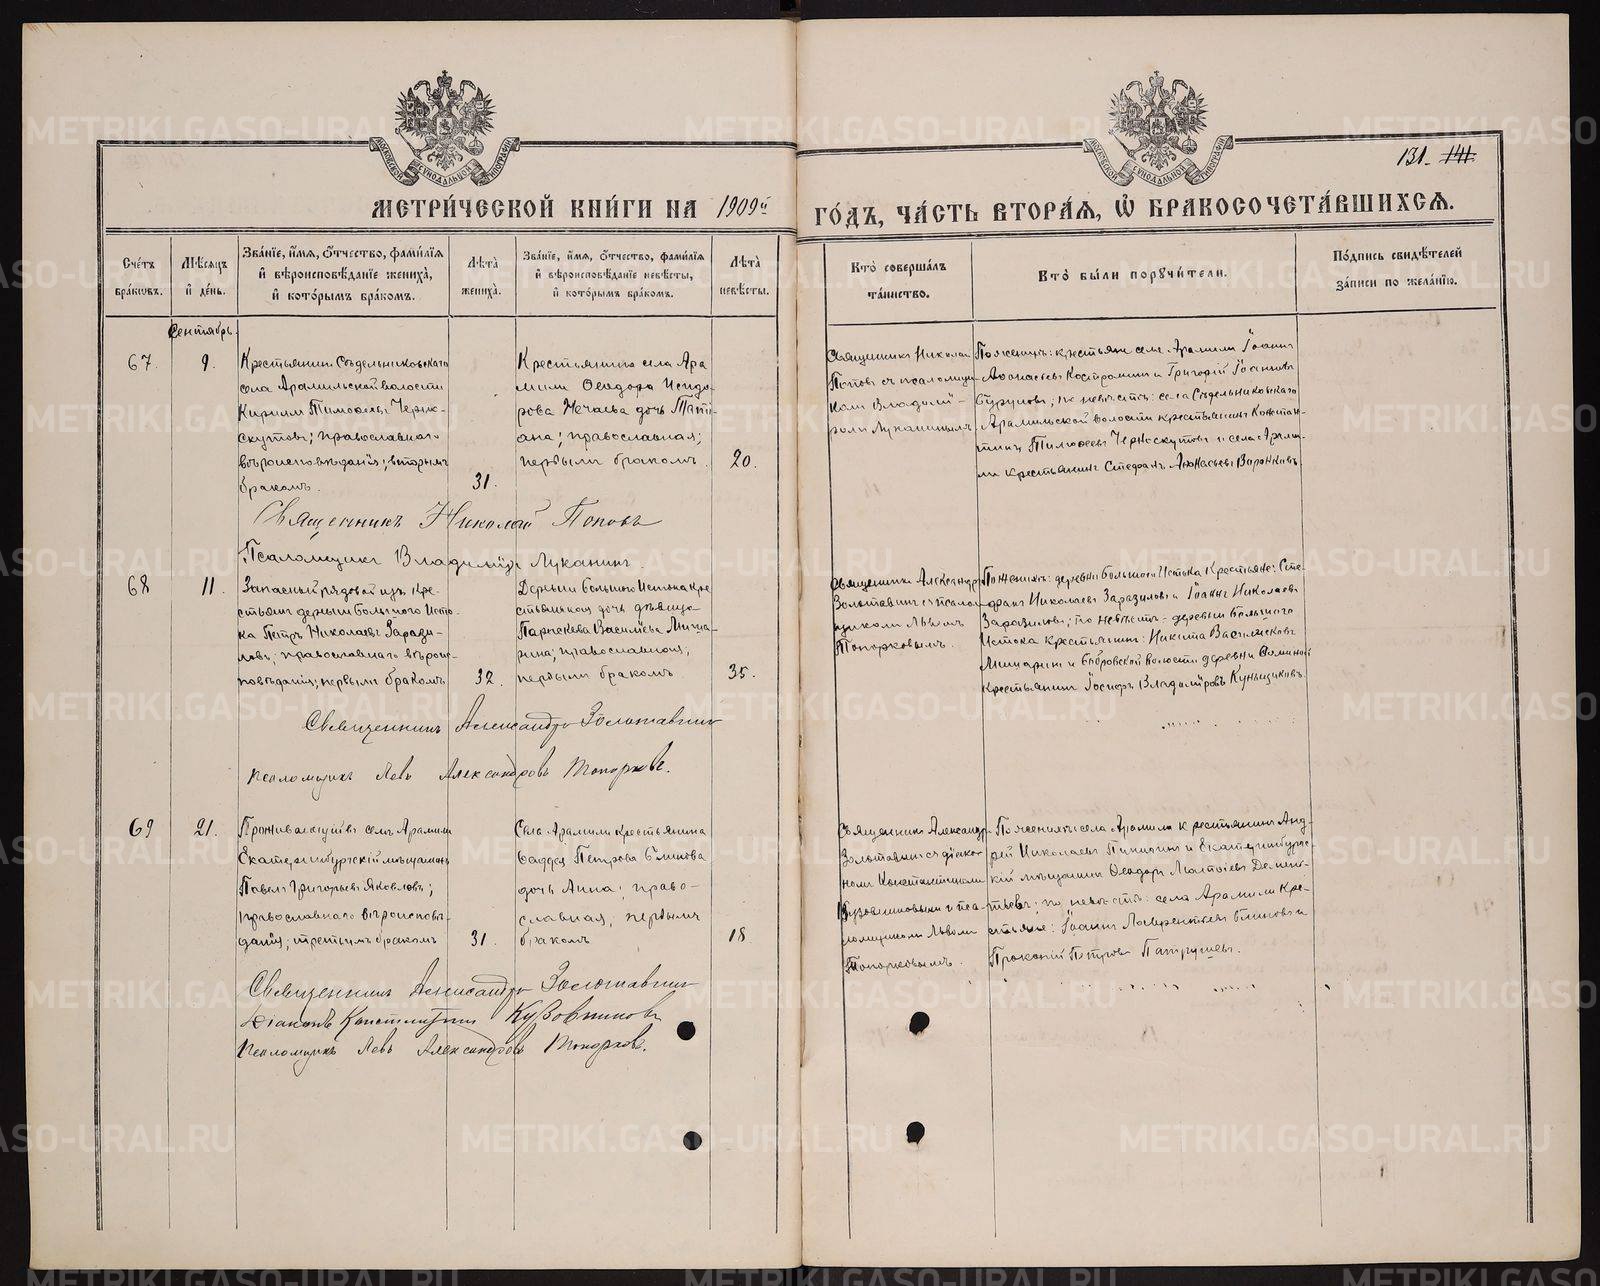 131. 141.
МЕТРИ́ЧЕСКОЙ КНИ́ГИ НА 1909й ГО́ДЪ, ЧА́СТЬ ВТОРА́Я, Ѡ БРАКОСОЧЕТА́ВШИХСЯ.
Сче́тъ бра́ковъ.
Мѣ́сяцъ и де́нь.
Зва́нїе, и́мя, ѻ́тчество, фами́лїя
и вѣроисповѣ́данїе жениха̀,
и кото́рымъ бра́комъ.
Лѣта̀ жениха̀.
Зва́нїе, и́мя, ѻ́тчество, фами́лїя
и вѣроисповѣ́данїе невѣ́сты,
и кото́рымъ бра́комъ.
Лѣта̀ невѣ́сты.
Кто̀ соверша́лъ
та́инство.
Кто̀ бы́ли порꙋчи́тели.
По́дпись свидѣ́телей
за́писи по жела́нїю.
Сентябрь.
67.
9.
Крестьянинъ Сѣдельниковскаго
села Арамильской волости
Кириллъ Тимоѳеевъ Черно-
скутовъ; православнаго
вѣроисповѣданія; вторымъ
бракомъ.
31.
Крестьянина села Ара
мили Ѳеодора Исидо-
рова Нечаева дочь Тати-
ана; православная;
первымъ бракомъ.
20.
Священникъ Николай
Поповъ съ псаломщи-
комъ Владимі-
ромъ Луканинымъ
По женихѣ: крестьяне села Арамили Іоаннъ
Аѳанасьевъ Костроминъ и Григорій Іоанновъ
по невѣстѣ: села Сѣдельниковскаго
Арамильской волости крестьянинъ Констан-
тинъ Тимоѳеевъ Черноскутовъ и села Арами-
ли крестьянинъ Стефанъ Аѳанасьевъ
Священникъ Николай Поповъ
Псаломщикъ Владиміръ Луканинъ.
68
11.
Запасный рядовой изъ кре-
стьянъ деревни Большого Исто-
ка Петръ Николаевъ Зарази-
ловъ; православнаго вѣроис-
повѣданія; первымъ бракомъ
32.
Деревни Большого Истока кре
стьянская дочь дѣвица
Параскева Васильева Миша-
рина; православная;
первымъ бракомъ
35.
Священникъ Александръ
Золотавинъ съ псалом-
щикомъ Львомъ
Топорковымъ.
По женихѣ: деревни Большого Истока крестьяне: Сте-
фанъ Николаевъ Заразиловъ и Іоаннъ Николаевъ
Заразиловъ; по невѣстѣ: деревни Большого
Истока крестьянинъ: Никита Васильевъ
Мишаринъ и Бобровской волости деревни
крестьянинъ Іосифъ Владиміровъ Кунщиковъ.
Священникъ Александръ Золотавинъ
псаломщикъ Левъ Александровъ Топорковъ.
69
21.
Проживающій въ селѣ Арамили
Екатеринбургскій мѣщанинъ
Павелъ Григорьевъ Яковлевъ;
православнаго вѣроисповѣ-
данія; третьимъ бракомъ
31.
Села Арамили крестьянина
Ѳаддея Петрова Блинова
дочь Анна; право-
славная; первымъ
бракомъ
18
Священникъ Александръ
Золотавинъ съ діако-
номъ Константиномъ
Кузовниковымъ и пса-
ломщикомъ Львомъ
Топорковымъ.
По женихѣ: села Арамили крестьянинъ Анд-
рей Николаевъ и Екатеринбургс-
кій мѣщанинъ Ѳеодоръ Матѳіевъ Демен-
тьевъ; по невѣстѣ: села Арамили кре-
стьяне: Іоаннъ Лаврентьевъ Блиновъ и
Прокопій Петровъ Патрушевъ.
Священникъ Александръ Золотавинъ
Діаконъ Константинъ Кузовниковъ
Псаломщикъ Левъ Александровъ Топорковъ.
METRIKI.GASO-URAL.RU